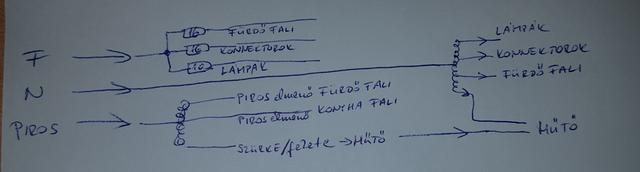 F
16 FÜRDŐ FALI
16 KONNEKTOROK
10 LÁMPÁK
N
LÁMPÁK
KONNEKTOROK
FÜRDŐ FALI
PIROS
PIROS elmenő FÜRDŐ FALI
PIROS elmenő KONYHA FALI
SZÜRKE/fekete → HŰTŐ
HŰTŐ